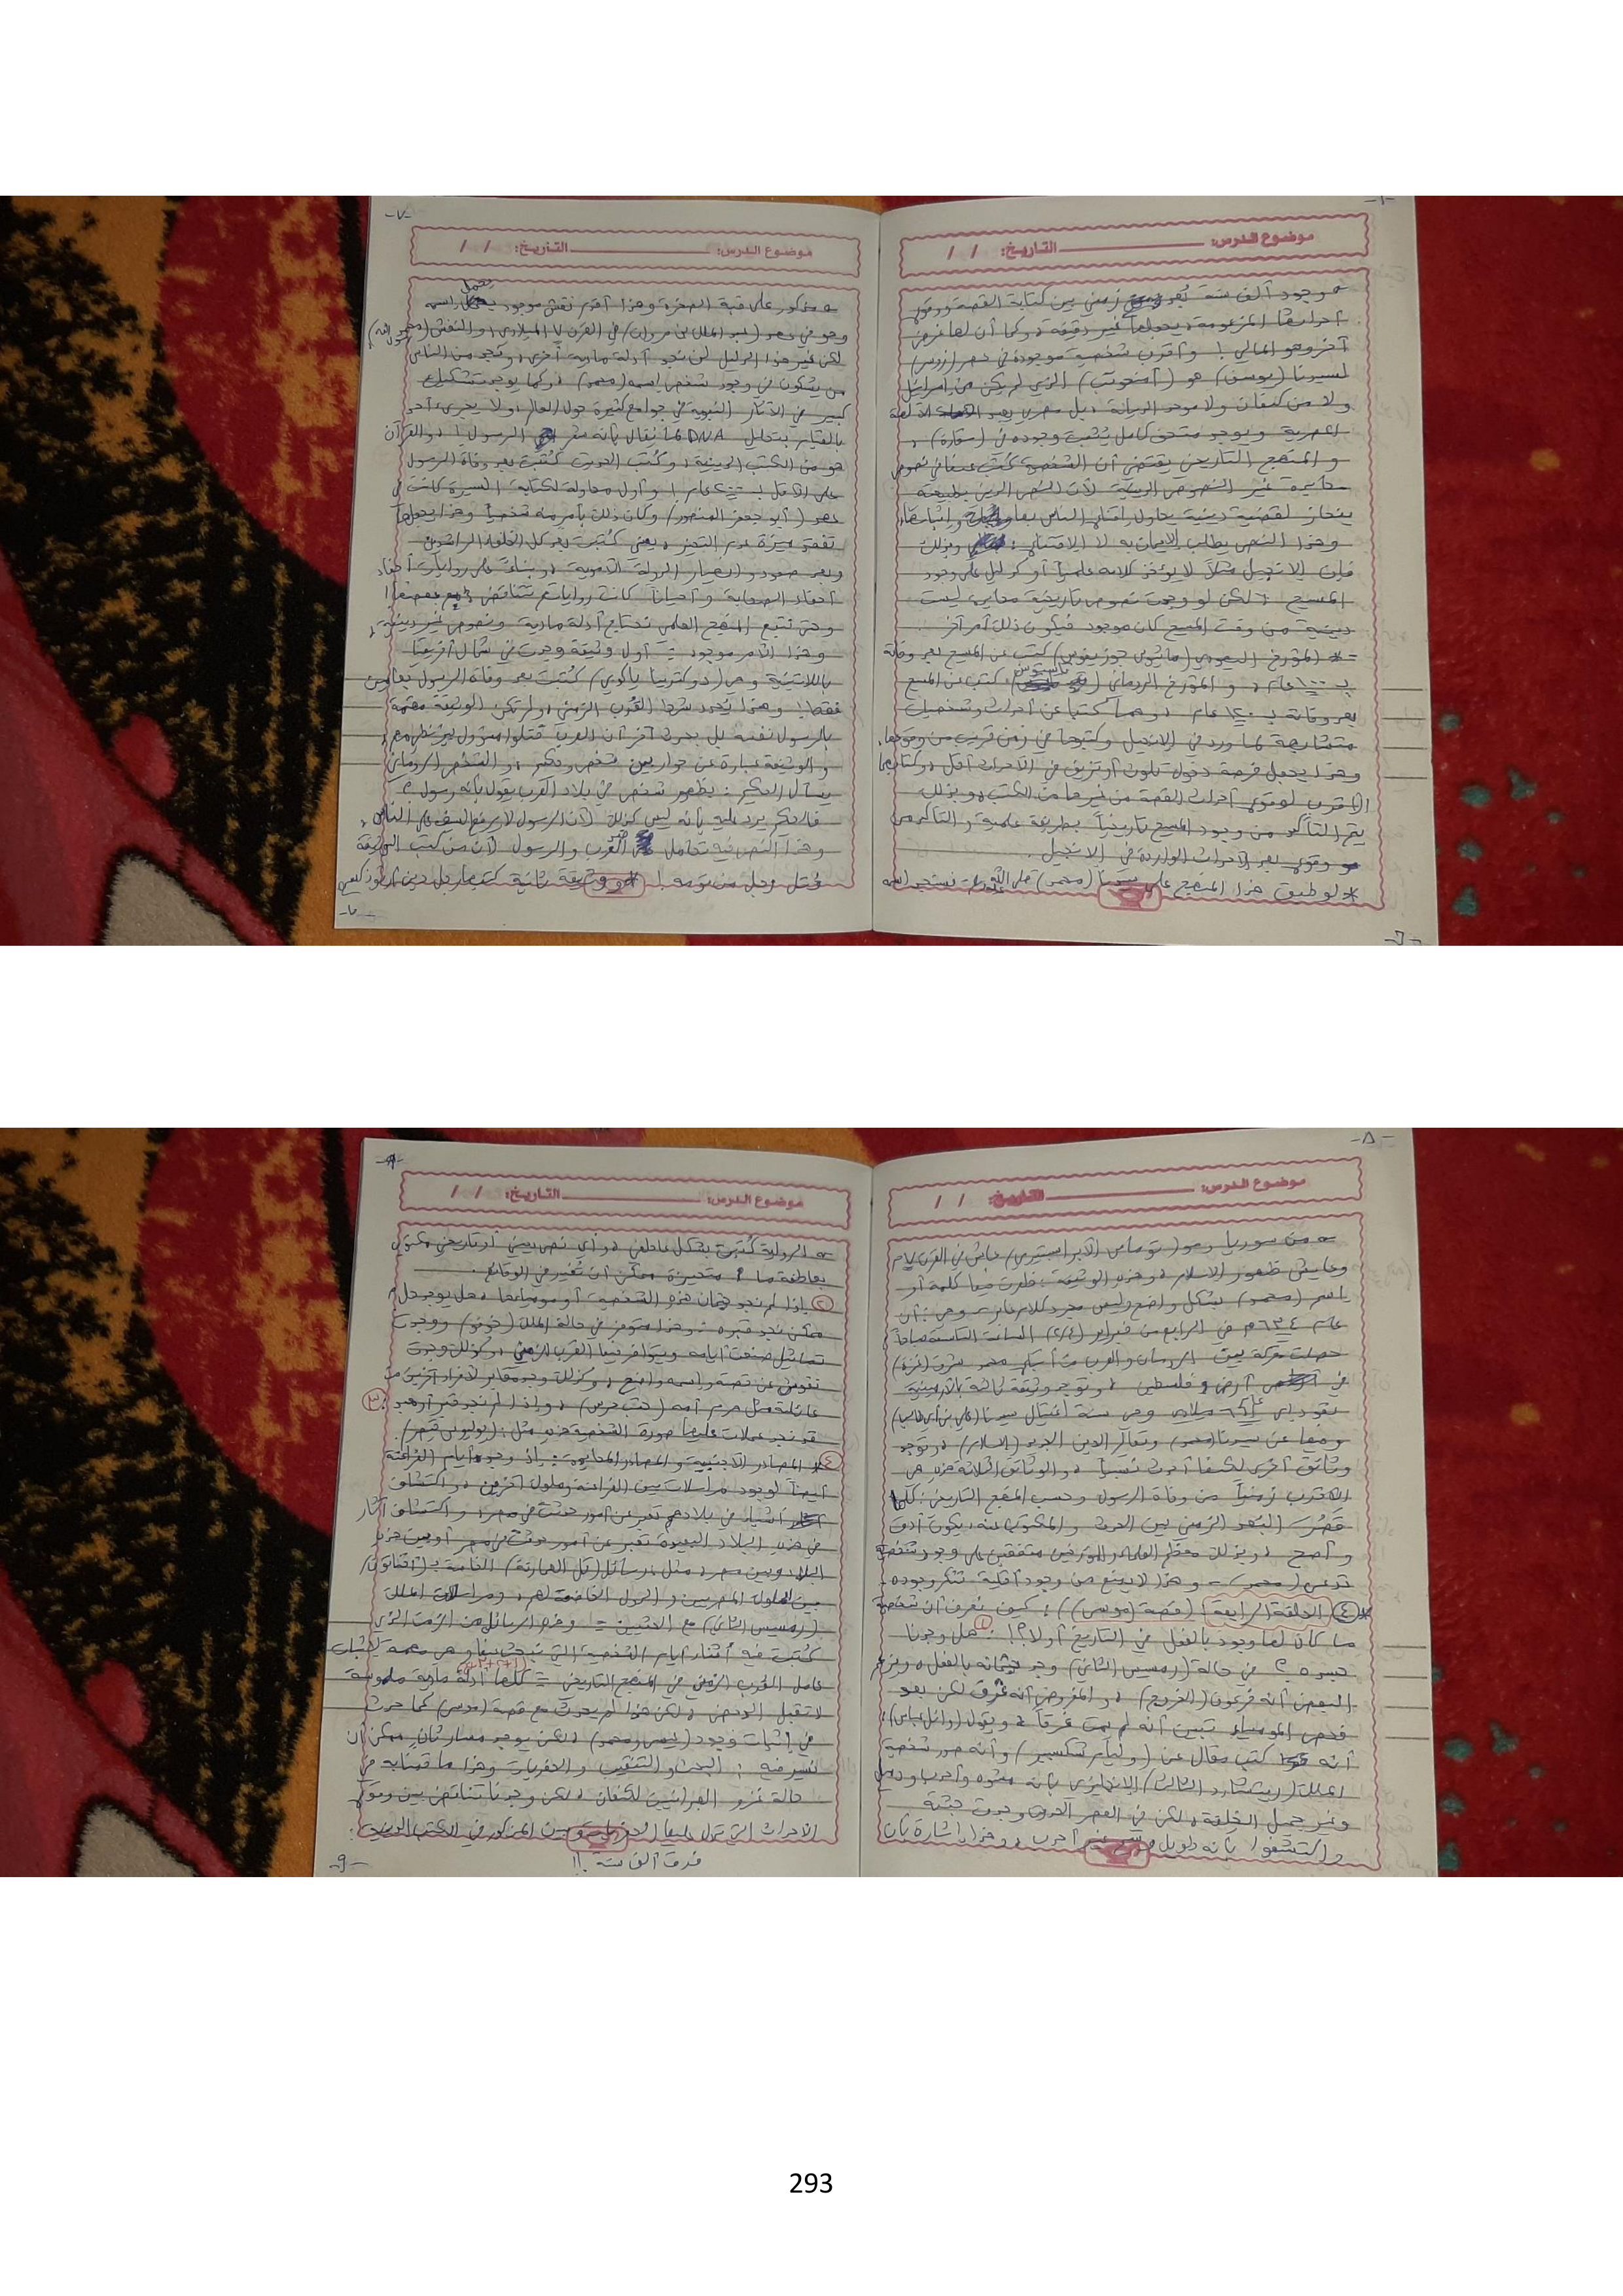 -٦-
موضوع الدرس: التاريخ: / /
وجود ألف سنة بُعد زمني بين كتابة القصة ووقوع
أحداثها المزعومة يجعلها غير دقيقة، وكما أن لها غرض
آخر وهو المالي! وأقرب شخصية موجودة في مصر (زوسر)
لسيدنا (يوسف) هو (أمنحوتب) الذي لم يكن من إسرائيل
ولا من كنعان ولا موحد الديانة، بل مصري يعبد الآلهة
المصرية ويوجد متحف كامل يُثبت وجوده في (سقارة)،
و المنهج التاريخي يقتضي أن الشخصية كُتب عنها في نصوص
محايدة غير النصوص الدينية لأن النص الديني بطبيعته
ينحاز لقضية دينية يحاول إقناع الناس بها وإثباتها،
وهذا النص يطالب الإيمان به لا الاقتناع، وبذلك
فإن الإنجيل مثلاً لا يؤخذ كلامه علمياً أو كدليل على وجود
المسيح؛ لكن لو وجدت نصوص تاريخية محايدة ليست
دينية من وقت المسيح كان موجود فيكون ذلك أمر آخر.
* المؤرخ اليهودي (جوزيفوس) كتب عن المسيح بعد وفاته
بـ ١٠٠ عام، و المؤرخ الروماني (تاسيتوس) كتب عن المسيح
بعد وفاته بـ ١٢٠ عام، وهما كتبا عن أحداث وشخصيات
متشابهة لما ورد في الإنجيل وكتبوها في زمن قريب من وقوعها،
وهذا يجعل فرصة دخول تلوث أو تزييف في الأحداث أقل،
الأقرب لوقوع أحداث القصة من غيرها من الكتب، وبذلك
يتم التأكد من وجود المسيح تاريخياً بطريقة علمية والتأكد من
وقوع بعض الأحداث الواردة في الإنجيل.
* لو طبق هذا المنهج على سيدنا (محمد) صلى الله فسنجد اسمه
-٧-
موضوع الدرس: التاريخ: / /
مذكور على قبة الصخرة وهذا أقدم نقش موجود يحمل اسمه
وهو في عهد (عبد الملك بن مروان) في القرن ٧ الميلادي، والنقش (محمد رسول الله)،
لكن غير هذا الدليل لن نجد أدلة مادية أخرى، ونجد من الناس
من يشكون في وجود شخص اسمه (محمد)، وكما يوجد تشكيك
كبير في الآثار النبوية في جوامع كثيرة حول العالم، ولا يجرؤ أحد
بالقيام بتحليل DNA لما يُقال بأنه شعر الرسول! والقرآن
هو من الكتب الدينية، وكُتب الحديث كُتبت بعد وفاة الرسول
على الأقل بـ ٢٠٠ عام! وأول محاولة لكتابة السيرة كانت في
عهد (أبو جعفر المنصور) وكان ذلك بأمر منه شخصياً وهذا يجعلها
تفقد ميزة عدم التحيز، يعني كُتبت بعد كل الخلفاء الراشدين
وبعد صعود وانهيار الدولة الأموية، وبناءً على روايات أحفاد
أحفاد الصحابة وأحياناً كانت رواياتهم تتناقض مع بعضها!
وحتى نتبع المنهج العلمي نحتاج أدلة مادية ونصوص غير دينية،
وهذا الأمر موجود: أول وثيقة وجدت في شمال أفريقيا
باللاتينية وهي (دوكترينا ياكوبي) كُتبت بعد وفاة الرسول بعامين
فقط! وهذا يُحدد شرط القُرب الزمني، ولم تكن الوثيقة مهتمة
بالرسول نفسه بل بحدث آخر أن العرب قتلوا مسؤول بيزنطي مهم،
و الوثيقة عبارة عن حوار بين شخص وحكيم، و الشخص الروماني
يسأل الحكيم: يظهر شخص في بلاد العرب يقول بأنه رسول؟
فالحكيم يرد عليه بأنه ليس كذلك لأن الرسول لا يرفع السيف على الناس،
وهذا النص فيه تحامل ضد العرب والرسول لأن من كتب الوثيقة
قُتل رجل من قومه! * ووثيقة ثانية كتبها رجل دين أرثوذكسي
-٧-
-٨-
موضوع الدرس: التاريخ: / /
من سوريا وهو (توماس الأبرابستري) عاش في القرن ٧ م
وعايش ظهور الإسلام، وهذه الوثيقة: ظهرت فيها كلمة أو
باسم (محمد) بشكل واضح وليس مجرد كلام عابر، وهي: أن
عام ٦٣٤م في الرابع من فبراير (٤/٢) الساعة التاسعة صباحاً
حصلت معركة بين الرومان والعرب من أتباع محمد شرق (غزة)
في أرض فلسطين، وتوجد وثيقة ثالثة بالأرمينية
تعود إلى عام ٦٦٠ ميلادي وهي سنة اغتيال سيدنا (علي بن أبي طالب)
وفيها عن سيدنا (محمد) وتعاليم الدين الجديد (الإسلام)، وتوجد
وثائق أخرى لكنها أحدث نسبياً، و الوثائق الثلاثة هذه هي
الأقرب زمنياً من وفاة الرسول وحسب المنهج التاريخي: كلما
قَصُر البُعد الزمني بين الحدث و المكتوب عنه، يكون أدق
و أصح، وبذلك معظم العلماء والمؤرخين متفقين على وجود شخصية
تدعى (محمد)، وهذا لا يمنع من وجود أقلية تنكر وجوده.
* ٤ الحلقة الرابعة (قصة (موسى)): كيف نعرف أن شخصية
ما كان لها وجود بالفعل في التاريخ أو لا؟! ١: هل وجدنا
جسده؟ في حالة (رمسيس الثاني) وجد جثمانه بالفعل، ويزعم
البعض أنه فرعون (الخروج)، و المفروض أنه غرق لكن بعد
فحص المومياء تبين أنه لم يمت غرقاً، ويقول (وائل عباس):
أنه كتب مقال عن (وليام شكسبير) وأنه صور شخصية
الملك (ريتشارد الثالث) الإنجليزي بأنه مشوه وأحدب ودميم
وغير جميل الخلقة، لكن في العصر الحديث وجدت جثته
و اكتشفوا بأنه طويل وغير أحدب، وهذا إشارة بأن
موضوع الدرس: التاريخ: / /
الرواية كُتبت بشكل عاطفي، وأي نص ديني أو تاريخي مكتوب
بعاطفة ما متحيزة ممكن أن تُغير في الوقائع.
٢ إذا لم نجد جثمان هذه الشخصية أو موميائها، هل يوجد دليل؟
ممكن نجد قبره، وهذا متوفر في حالة الملك (خوفو) ووجدت
تماثيل صنعت أيامه ويتوافر فيها القرب الزمني، وكذلك وجدت
نقوش عن قصة واسمه واضح، وكذلك وجد مقابر لأفراد آخرين من
عائلة مثل هرم أمه (حتب حرس)، وإذا لم نجد قبر أو جسد ٣:
قد نجد عملات عليها صورة الشخصية هذه مثل: (يوليوس قيصر).
٤ * المصادر الأجنبية و المصادر المحايدة: وجود أيام الفراعنة
أيضاً لوجود مراسلات بين الفراعنة وملوك آخرين، واكتشاف
أشياء في بلادهم تعبر عن أمور حدثت في مصر، واكتشاف آثار
في هذه البلاد البعيدة تعبر عن أمور حدثت في مصر أو بين هذه
البلاد وبين مصر، مثل: رسائل (تل العمارنة) الخاصة بـ (أخناتون)
بين الملوك المصريين و الدول الخاضعة لهم، ومراسلات الملك
(رمسيس الثاني) مع الحثيين = وهذه الرسائل من الوقت الذي
كُتبت فيه أثناء أيام الشخصية التي نبحث فيها وهي مهمة لإثبات
عامل القرب الزمني في المنهج التاريخي = كلها أدلة مادية ملموسة
لا تقبل الدحض، لكن هذا لم يحدث مع قصة (موسى) كما حدث
في إثبات وجود (عيسى ومحمد)، لكن يوجد مسار ثان ممكن أن
نسير فيه: البحث و التنقيب و الحفريات وهذا ما قمنا به في
حالة غزو العبرانيين لكنعان، لكن وجدنا تناقض بين وقوع
الأحداث التي تدل عليها الحفريات وبين المذكور في الكتب الدينية:
فرق ألف سنة!!
-٩-
293